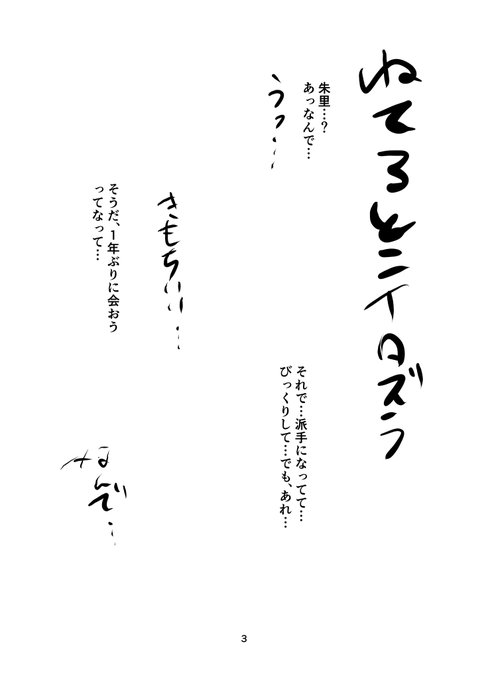 ねてるとこイタズラ
朱里…？
あっなんで…
うっ…
きもちいい…
そうだ、1年ぶりに会おう
ってなって…
それで…派手になってて…
びっくりして…でも、あれ…
なんで…
3